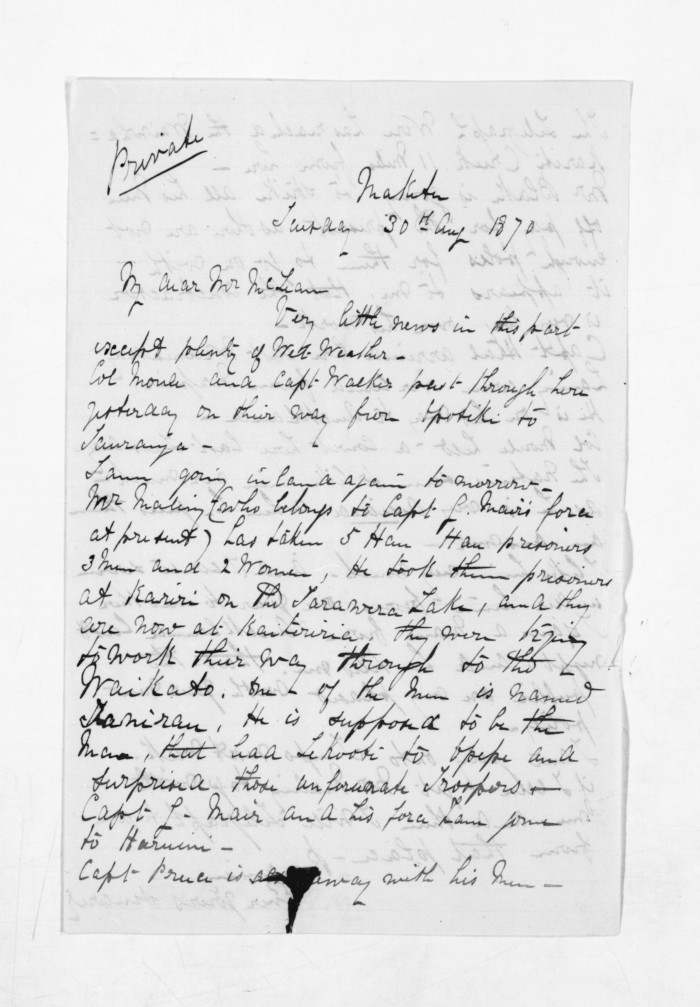 Private
Maketu
Tuesday 30th Aug 1870
My dear Mr McLean
Very little news in this part
except plenty of Wet Weather -
Col Moule and Capt Walker past through here
yesterday on their way from Opotiki to
Tauranga -
I am going inland again to morrow -
Mr Maling (who belongs to Capt G. Mair's force
at present) has taken 5 Hau Hau prisoners
3 Men and 2 Women, He took them prisoners
at Kariri on the Tarawera Lake, and they
are now at Kaiteriria. they were trying
to work their way through to the
Waikato. one - of the Men is named
He is supposed to be the
Man, that lead Tekooti to Opepe and
surprised those unfortunate Troopers -
Capt G - Mair and his force have gone
to
Capt is away with his Men -